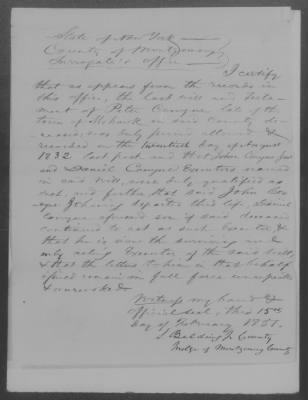 State of New York
County of Montgomery
Surrogate's Office
I certify
that as appears from the records in
this office, the last will and Testa-
ment of Peter Conyne late of the
town of Mohawk in said County de-
ceased was duly proved allowed &
recorded on the twentieth day of August
1832 last past and that John Conyne
and Daniel Conyne Executors named
in said will, were duly qualified as
such, and further that said John Con-
yne having departed this life, Daniel
Conyne son of said deceased
continued to act as such Executor &
that he is now the surviving and
only acting Executor of the said will,
& that the letters to him in that behalf
issued remain in full force
&
Witness my hand &
official seal, this 15th
day of February 1851.
S Belding Jr County
Judge of Montgomery County